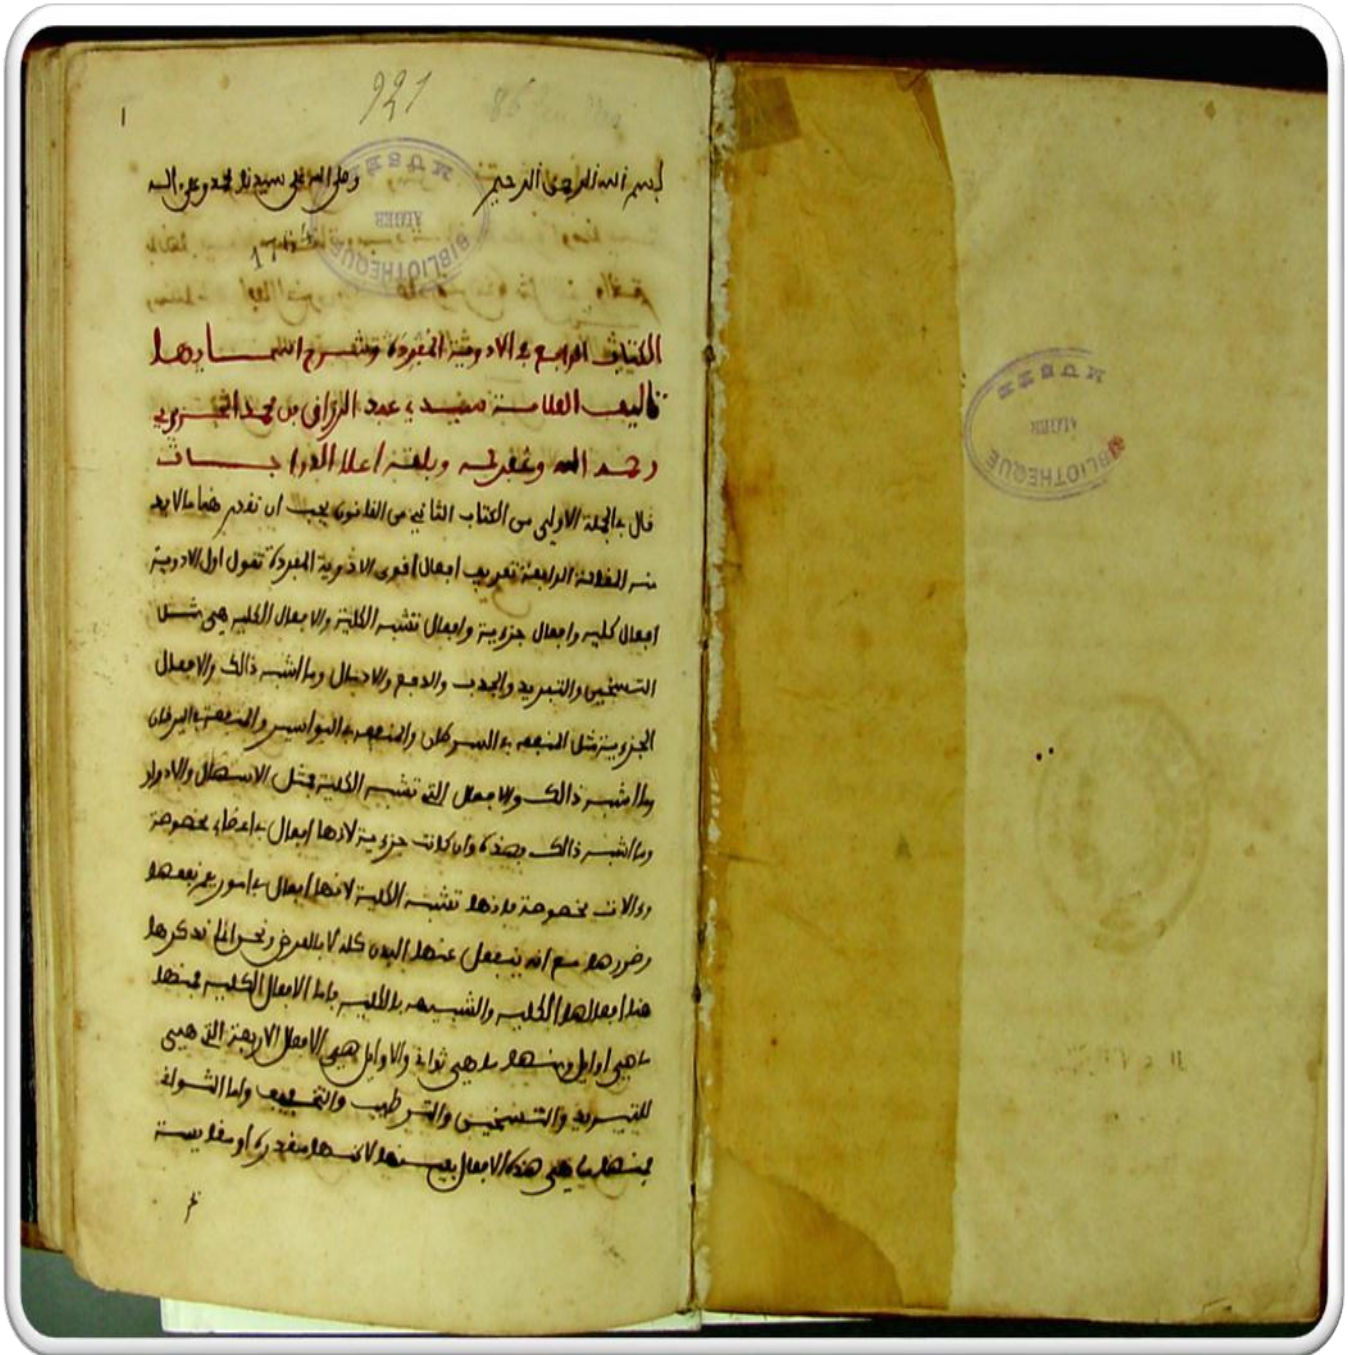 921
1
بسم الله الرحمن الرحيم وصلى الله على سيدنا محمد وعلى اله
BIBLIOTHEQUE MUSEE ALGER
الكتاب الرابع في الادوية المفردة وشرح اسمايها
تاليف العلامة سيدي عبد الرزاق بن محمد الجزيري
رحمه الله وغفر له وبلغه اعلا الدراجات
قال في الجملة الاولى من الكتاب الثاني من القانون يجب ان نقدم هنا مالابد
منه المقالة الرابعة تعريف افعال اقوى الادوية المفردة تقول اول الادوية
افعال كليه وافعال جزءية وافعال تشبه الكلية والافعال الكليه هي مثل
التسخين والتبريد والجدب والدفع والادمال وما اشبه ذالك والافعال
الجزءية مثل المنفعه في السرطان والمنفعه في البواسير والمنفعة في اليرقان
وما اشبه ذالك والافعال التي تشبه الكلية مثل الاسهال والادرار
وما اشبه ذالك وهذه وان كانت جزءية لانها افعال في اعضاء مخصوصة
وءالات مخصوصة فانها تشبه الكلية لانها افعال في امور يعم نفعها
وضررها مع انه ينفعل عنها البدن كله لا بالعرض ونحن انما نذكرها
هنا افعالها الكليه والشبيهه بالكليه فاما الافعال الكليه فمنها
ماهي اوايل ومنها ما هي ثواني والاوايل هي الافعال الاربعة التي هي
التبريد والتسخين والترطيب والتجفيف واما الثواني
فمنها ما هي هذه الافعال بعينها لاكنها مقدرة او مقايسة
BIBLIOTHEQUE MUSEE ALGER